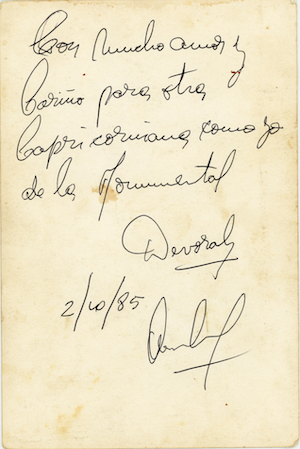 Con mucho amor y
Cariño para otra
Capricorniana como yo
de la Monumental
Devorah
2/10/85